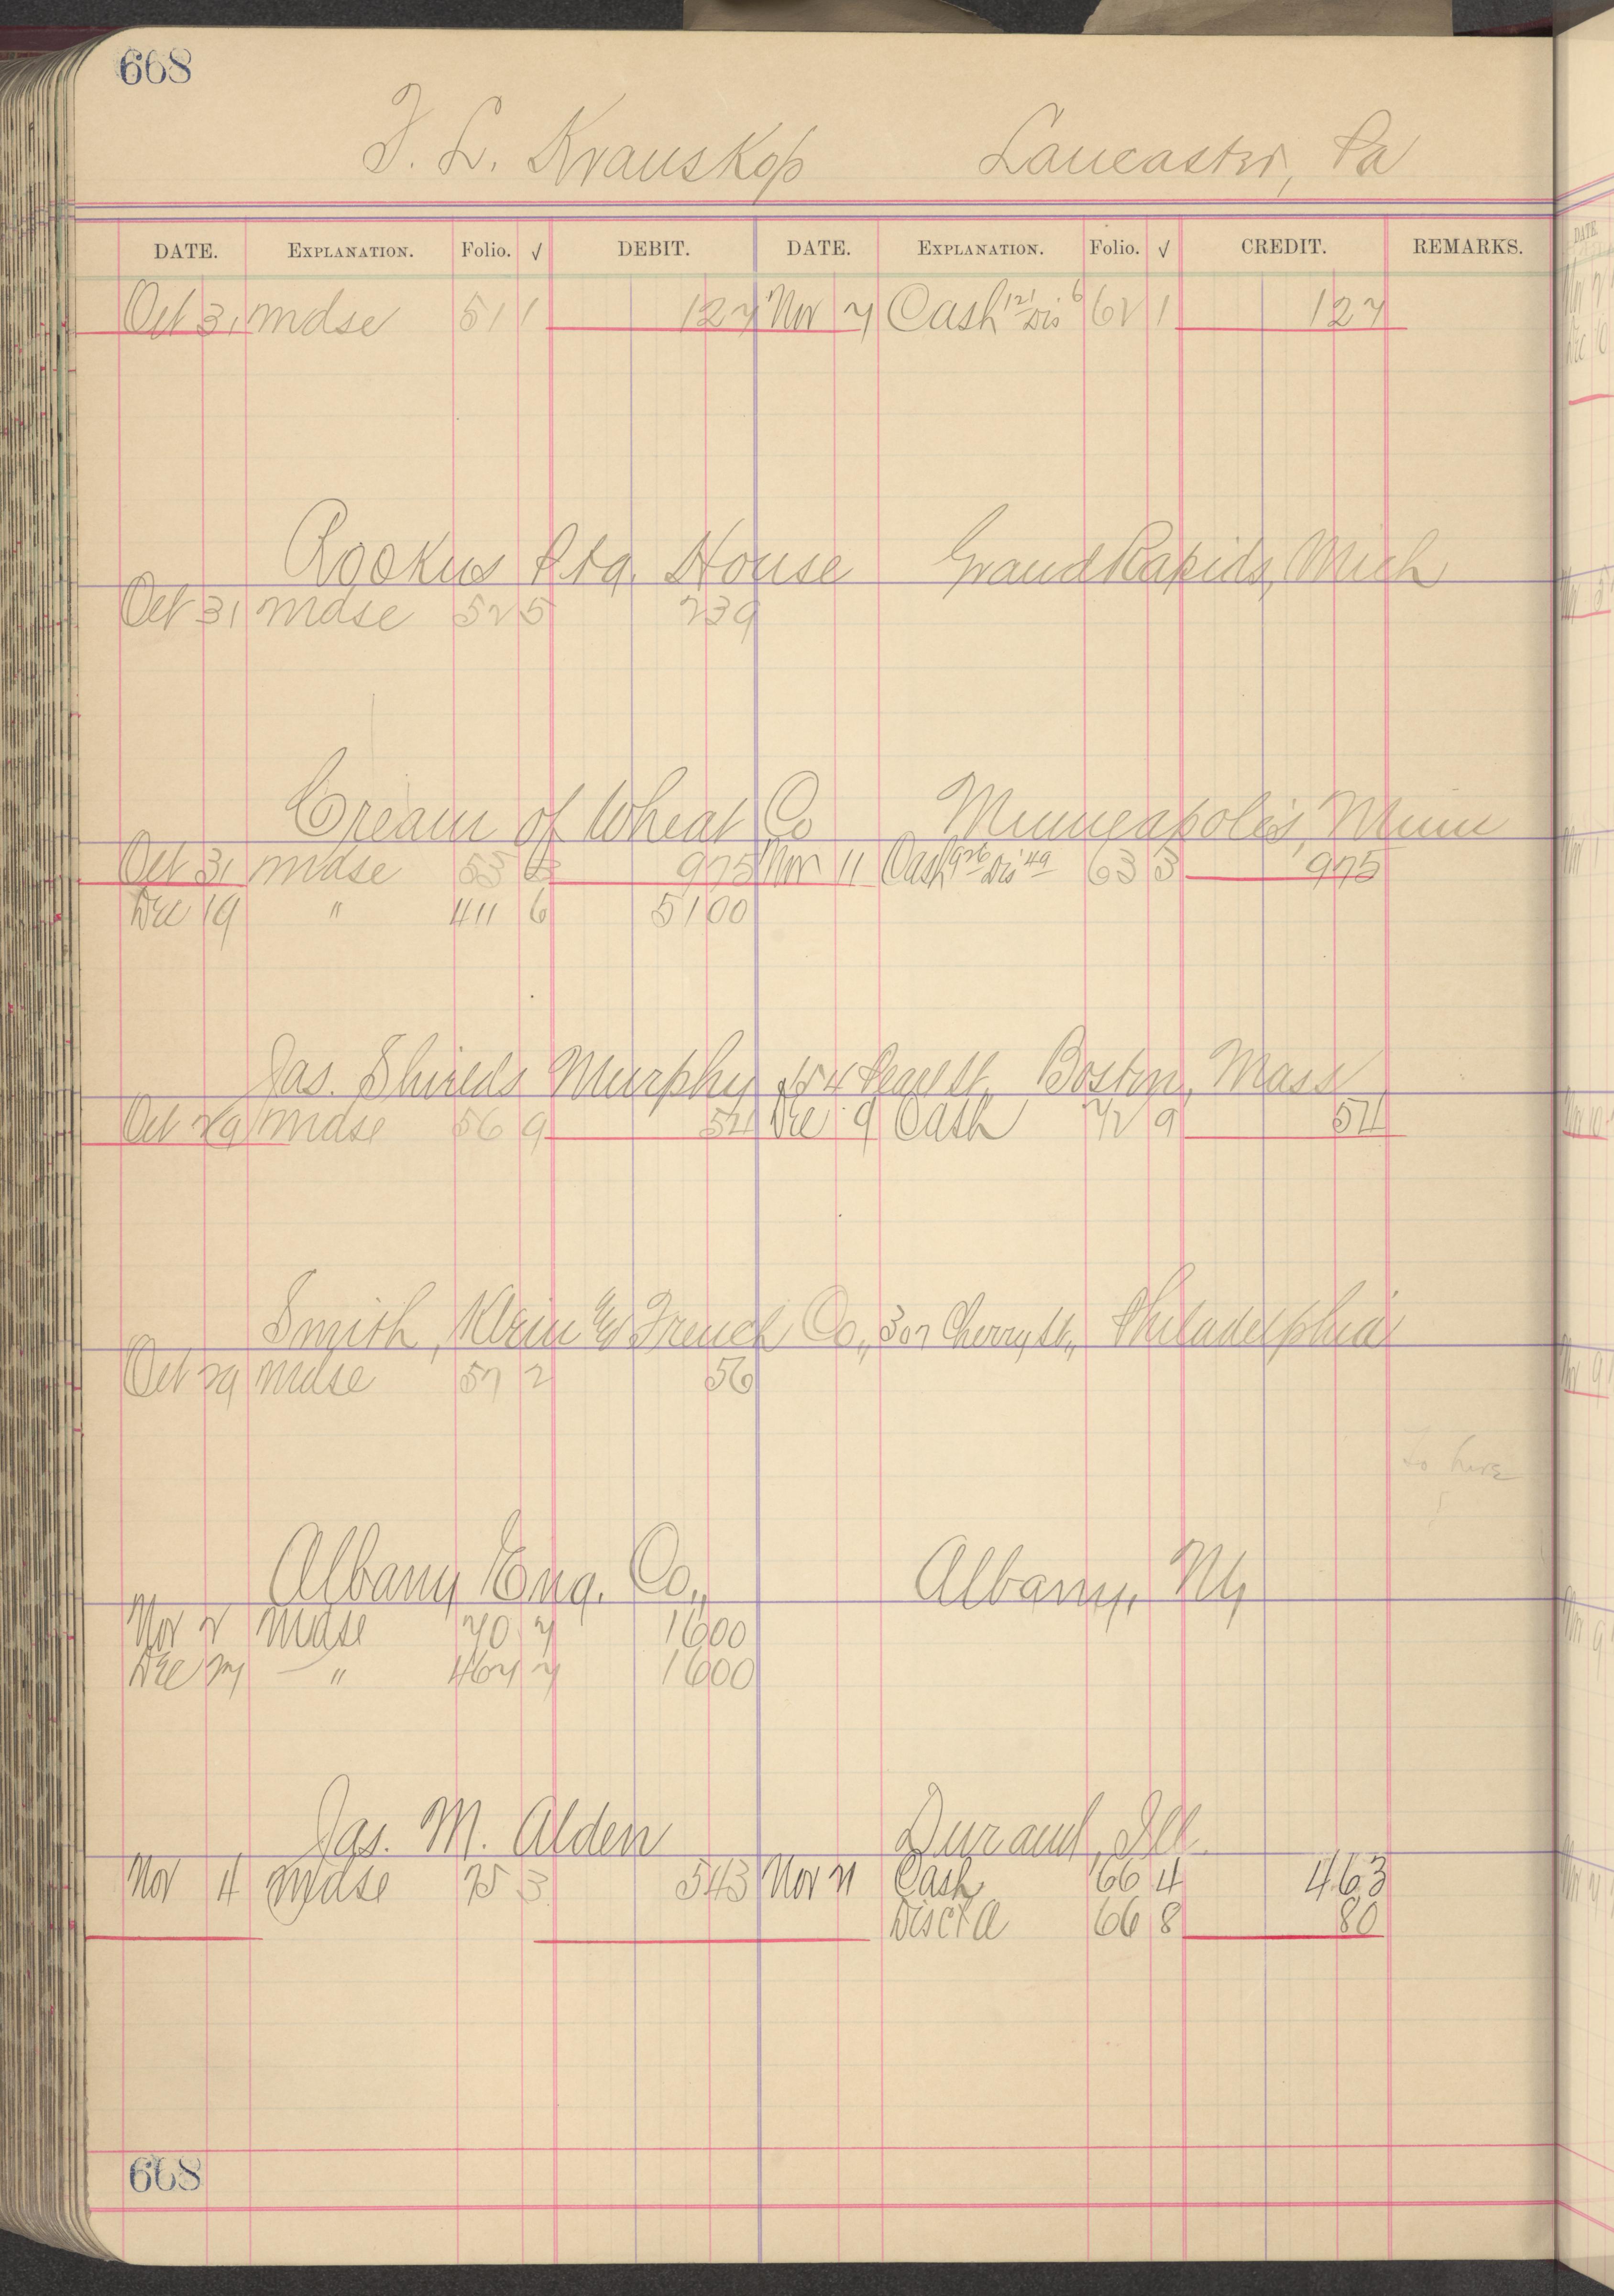 668
F. L. Krauskop Lancaster, Pa
DATE. EXPLANATION. Folio. √ DEBIT. DATE. EXPLANATION. Folio. √ CREDIT. REMARKS.
Oct 31 Mdse 51 1 127 Nov 7 Cash 121 Dis 6 62 1 127
Ptg House Grand Rapids, Mich
Oct 31 Mdse 52 5 239
Cream of Wheat Co Minneapolis, Minn
Oct 31 Mdse 55 975 Nov 11 Cash 926 Dis 49 63 3 975
Dec 19 " 411 6 5100
Jas. Shields Murphy 154 Pearl St. Boston, Mass
Oct 29 Mdse 56 9 54 Dec 9 Cash 72 9 54
Smith, Klein & French Co., 307 Cherry St., Philadelphia
Oct 29 Mdse 57 2 56
To here
Albany Eng. Co., Albany, NY
Nov 2 Mdse 70 7 1600
Dec 27 " 464 7 1600
Jas. M. Alden Durand, Ill.
Nov 4 Mdse 75 3 543 Nov 21 Cash 66 4 463
Disct a 66 8 80
668